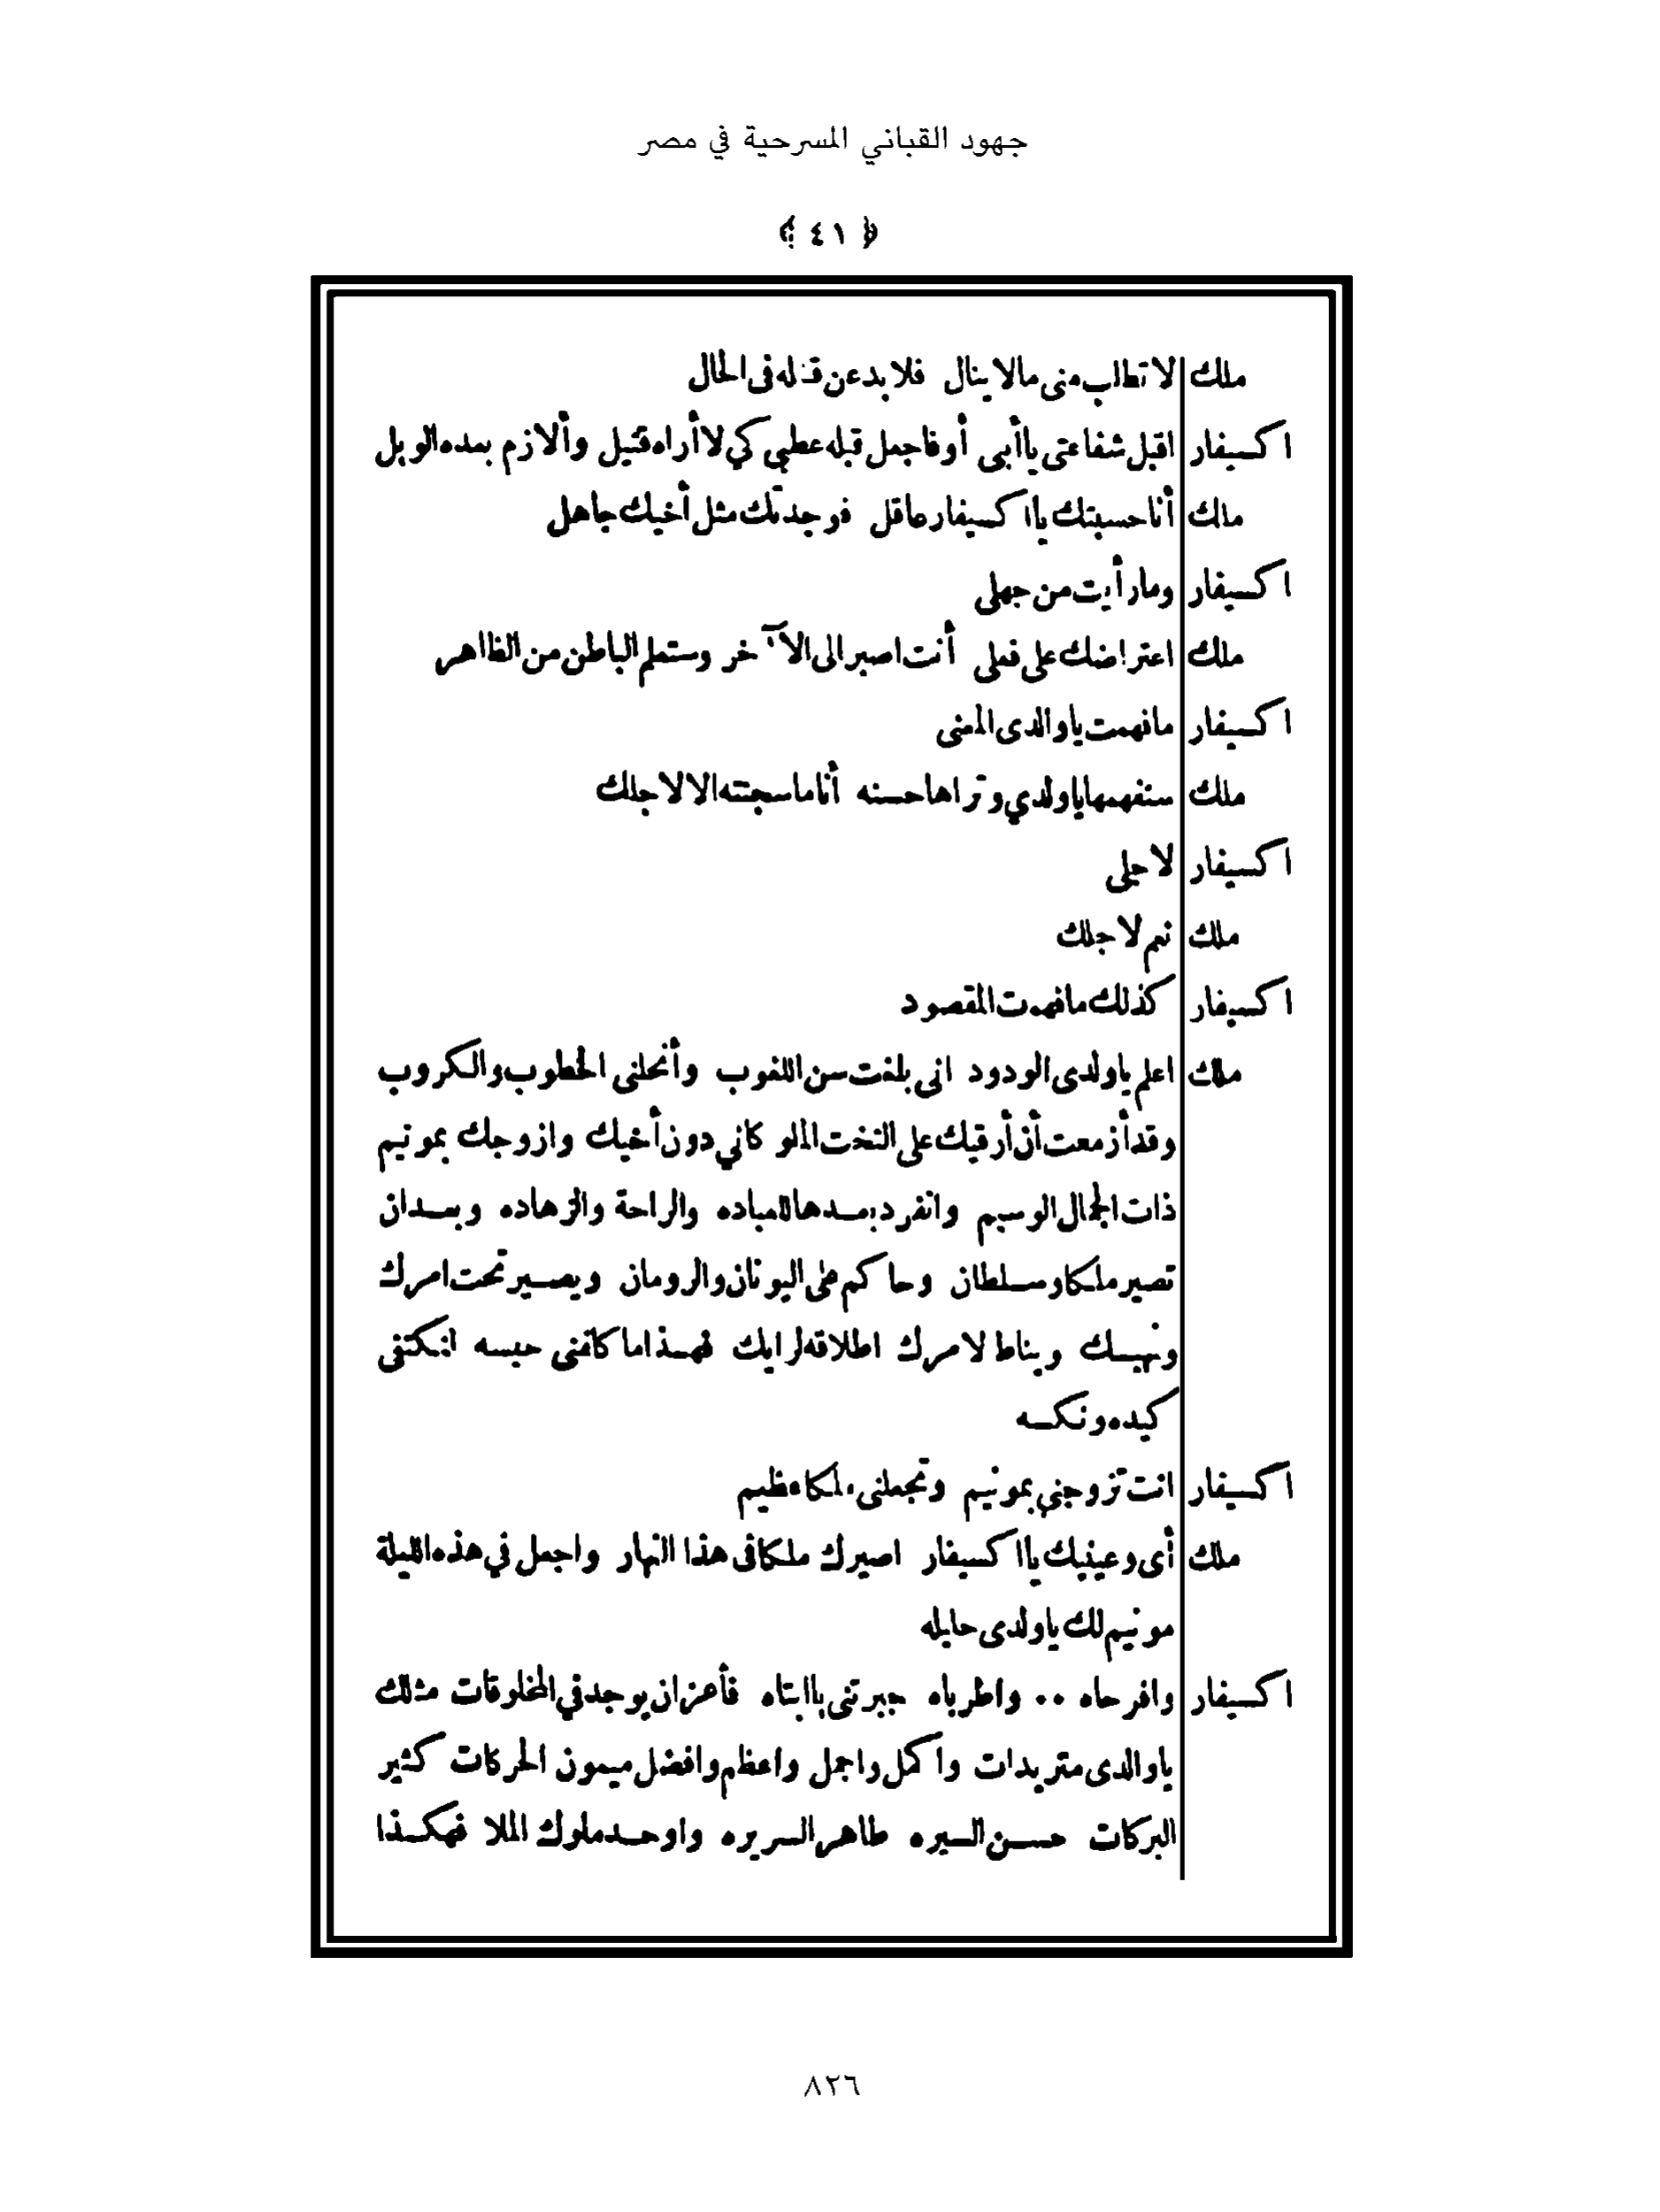 جهود القباني المسرحية في مصر
﴿ ٤١ ﴾
ملك لا تطلب منى مالا ينال فلا بد عن قتله فى الحال
اكسيفار اقبل شفاعتى يا أبى أو فاجعل قبله عطبي كي لا أراه قتيل وألازم بعده الويل
ملك أنا حسبتك يا اكسيفار عاقل فوجدتك مثل أخيك جاهل
اكسيفار وما رأيت من جهلى
ملك اعتراضك على فعلى أنت اصبر الى الآخر وستعلم الباطن من الظاهر
اكسيفار مافهمت ياوالدى المعنى
ملك ستفهمها ياولدي وتراها حسنه أنا ما سجنته الا لاجلك
اكسيفار لاجلى
ملك نعم لاجلك
اكسيفار كذلك مافهمت المقصود
ملك اعلم ياولدى الودود انى بلغت سن اللغوب وأنحلنى الخطوب والكروب
وقد أزمعت أن أرقيك على التخت الملوكاني دون أخيك وازوجك بمونيم
ذات الجمال الوسيم وانفرد بعدها للعباده والراحة والزهاده وبعد ان
تصير ملكا وسلطان وحاكم على اليونان والرومان ويصير تحت امرك
ونهيك ويناط لامرك اطلاقه لرايك فهذا ما كلفنى حبسه لنكتفى
كيده ونكسه
اكسيفار انت تزوجني بمونيم وتجعلنى ملكا عظيم
ملك أى وعينيك يا اكسيفار اصيرك ملكا فى هذا النهار واجعل في هذه الليلة
مونيم لك ياولدى حليله
اكسيفار وافرحاه ٠٠ واطرباه جبرتنى يا ابتاه فأعز ان يوجد في المخلوقات مثلك
ياوالدى متريدات واكمل واجمل واعظم وافضل ميمون الحركات كثير
البركات حسن السيره طاهر السريره واوحد ملوك الملا فهكذا
٨٢٦